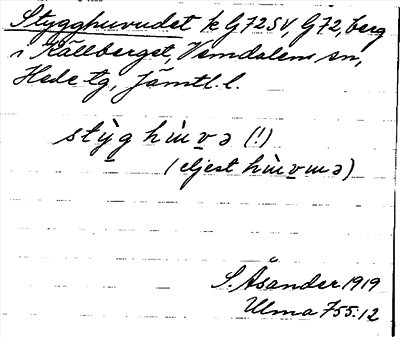 Stygghuvudet k G72SV, G72, berg
i Källberget, Vemdalens sn,
Hede tg, Jämtl. l.
stỳg hɯ̀və (!)
(eljest hɯ̀vɯə)
S. Åsander 1919
Ulma 755:12